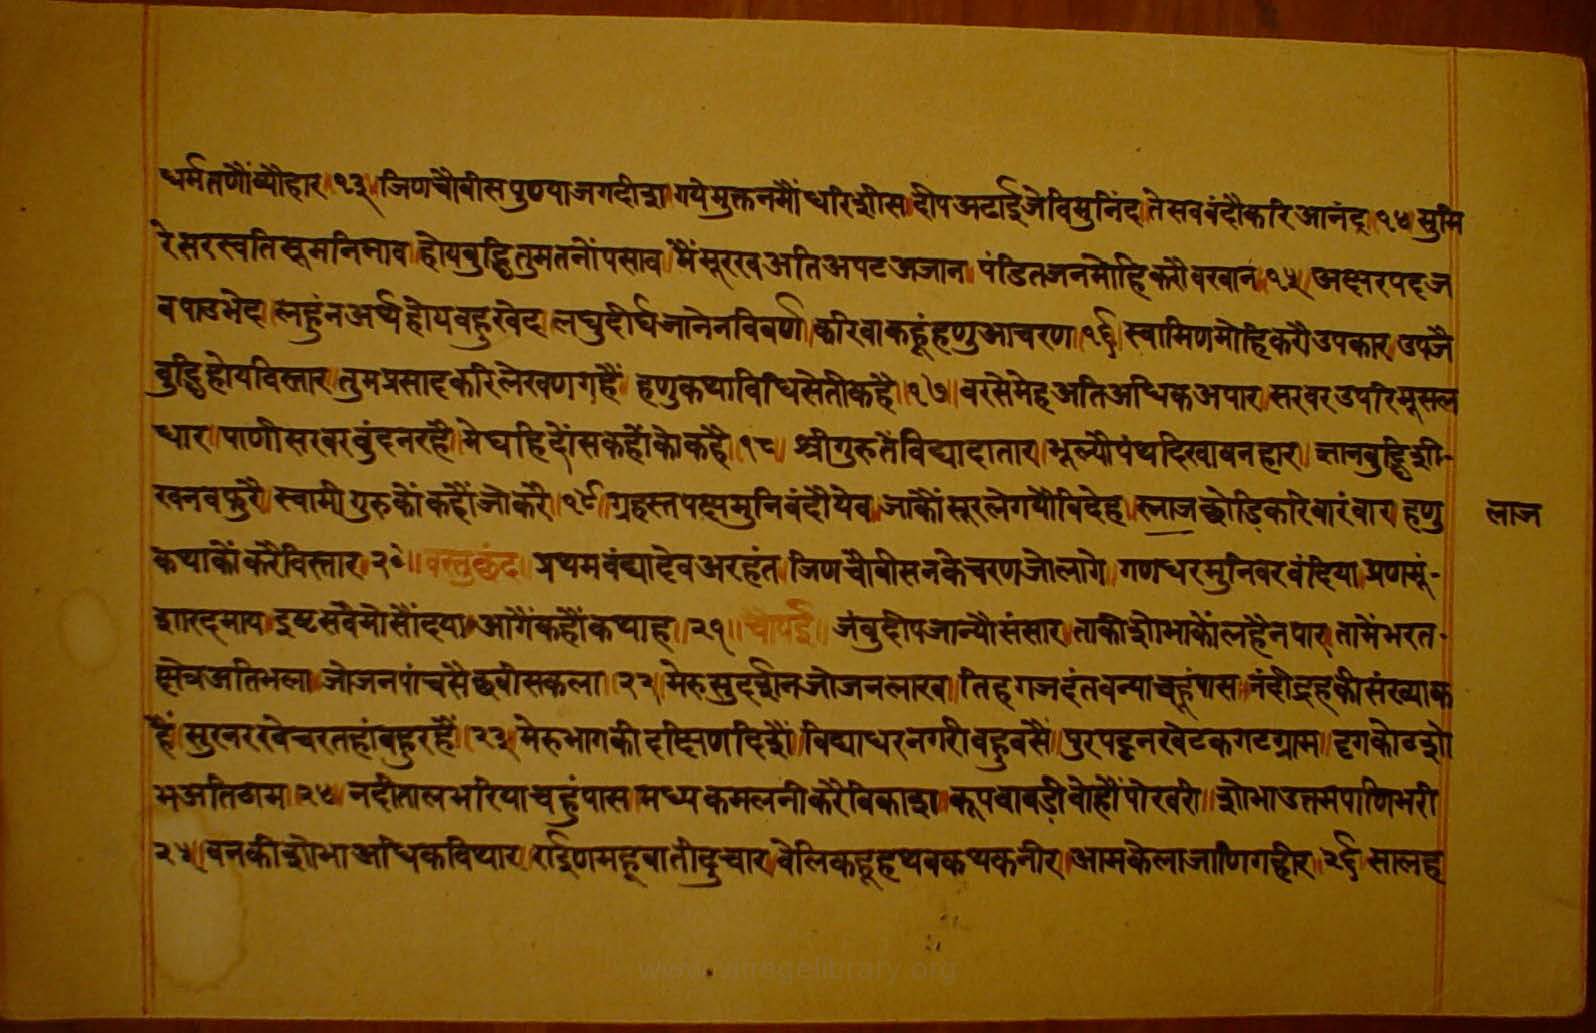 धर्मतणौंव्यौहार ।१३। जिणचौवीसपुण्याजगदीश गयेमुक्तनमौंधरिशीस दीपअटाईजेविमुनिंद तेसववंदौकरिआनंद ।१४ सुमि
रेसरस्वतिसूमनिभाव होयबुद्धितुमतनोंपसाव मैंमूरखअतिअपटअजान पंडितजनमोहिकरौवखान ।१५। अक्षरपदअ
वपाउभेद लहुंनअर्थहोयवहुखेद लघुदीर्घजानेनविवर्ण करिवाकहूंहणुआचरण ।१६। स्वामिणमोहिकरौउपकार उपजै
वुद्धिहोयविस्तार तुमप्रसादकरिलेखणगहैं हणुकथाविधिसेतीकहै ।१७। वरसेमेहअतिअधिकअपार सरवरउपरिमूसल
धार पाणीसरवरवुंदनरहै मेघहिदोंसकहोंकोकहै ।१८ श्रीगुरुतेंविद्यादातार भूल्यौपंथदिखावनहार ज्ञानबुद्धिशी-
खनवफुरै स्वामीगुरुकोंकहौंजोकरै ।१९। ग्रहस्तपक्षमुनिवंदौयेव जांकौंसूरलेगयौविदेह लाजछोडिकरिवारंवार हणु लाज
कथाकोंकरैविस्तार २०॥ वस्तुछंद॥ प्रथमवंद्यादेवअरहंत जिणचौवीसनकेचरणजोलागे गणधरमुनिवरवंदिया प्रणमूं-
शारदमाय इष्टसवैमोसौंदया आगैंकहौंकथाह ॥२१॥ चौपई॥ जंवुदीपजान्यौसंसार ताकीशोभाकोंलहैनपार तामेंभरत-
क्षेत्रअतिभला जोजनपांचसैछवीसकला ।२२ मेरुसुदर्शनजोजनलाख तिहगजदंतवन्याचहूंपास नंदीद्रहकीसंख्याक
हैं सुरनरखेचरतहांवहुरहैं ।२३। मेरुभागकीदक्षिणदिशैं विद्याधरनगरीवहुवसै पुरपट्टनखेटकगटग्राम दृगकोटशो
भअतिठाम ।२४ नदीतालभरियाचहुंपास मध्यकमलनीकरैविकाश कूपवावड़ीवोहौंपोखरी शोभाउत्तमपाणिभरी
२५। वनकीशोभाअधिकविथार राईणमहूवातीदुचार वेलिकहूहथवकथकनीर आमकेलाजाणिगहीर ।२६ सालह